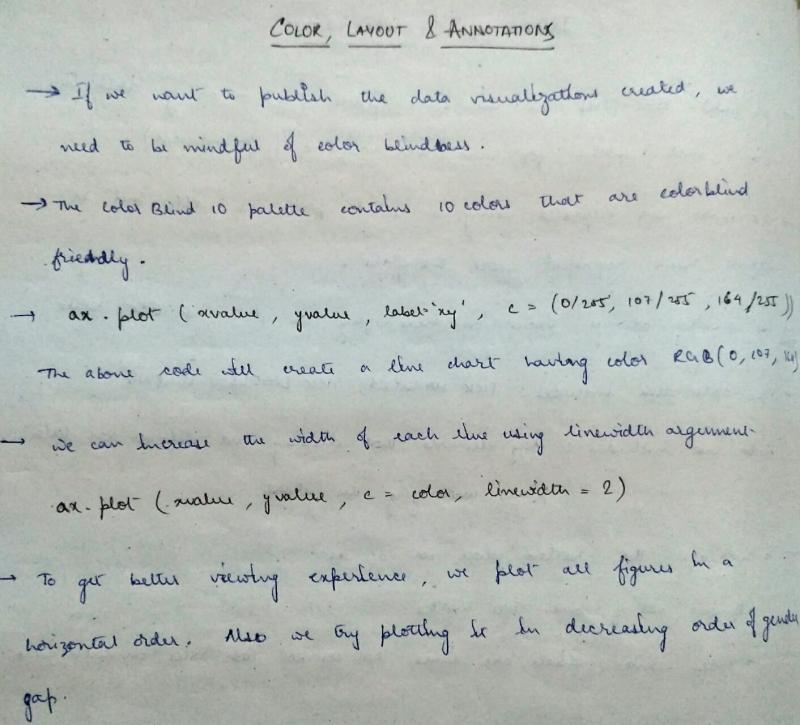 COLOR, LAYOUT & ANNOTATIONS
→ If we want to publish the data visualizations created, we
need to be mindful of color blindness.
→ The Color Blind 10 palette contains 10 colors that are colorblind
friendly.
→ ax.plot (xvalue, yvalue, label='xy', c = (0/255, 107/255, 164/255))
The above code will create a line chart having color RGB(0, 107, 164)
→ we can increase the width of each line using linewidth argument.
ax.plot (xvalue, yvalue, c = color, linewidth = 2)
→ To get better viewing experience, we plot all figures in a
horizontal order. Also we try plotting it in decreasing order of gender
gap.